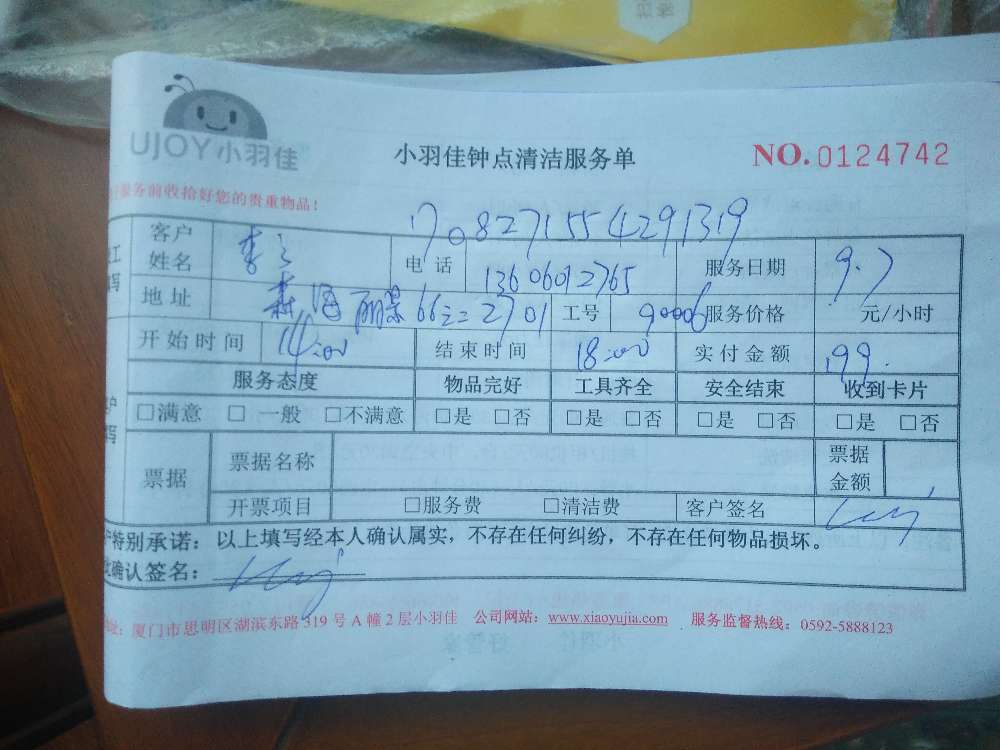 UJOY小羽佳
小羽佳钟点清洁服务单
NO.0124742
服务前收拾好您的贵重物品！
1708271554291319
客户姓名 李 电话 13606012765 服务日期 9.7
地址 森海丽景66之二2701 工号 90006 服务价格 元/小时
开始时间 14:00 结束时间 18:00 实付金额 199.
服务态度 物品完好 工具齐全 安全结束 收到卡片
□满意 □一般 □不满意 □是 □否 □是 □否 □是 □否 □是 □否
票据 票据名称 票据金额
开票项目 □服务费 □清洁费 客户签名
特别承诺：以上填写经本人确认属实，不存在任何纠纷，不存在任何物品损坏。
确认签名：
址：厦门市思明区湖滨东路319号A幢2层小羽佳 公司网站：www.xiaoyujia.com 服务监督热线：0592-5888123